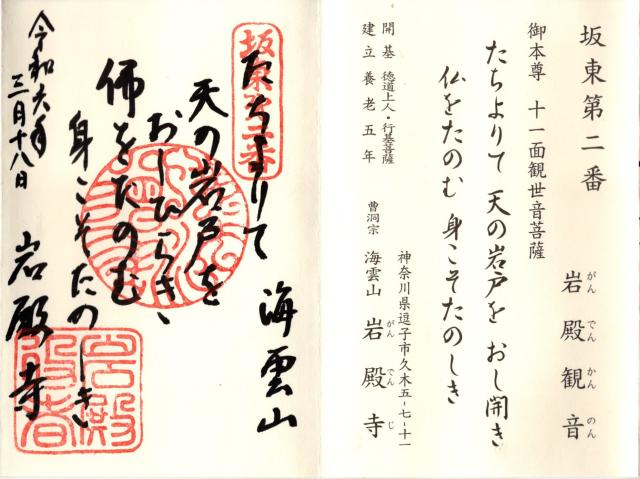 坂東第二番
岩殿観音
がんでんかんのん
御本尊 十一面観世音菩薩
たちよりて 天の岩戸を おし開き
仏をたのむ 身こそたのしき
開基 徳道上人・行基菩薩
建立 養老五年
神奈川県逗子市久木五-七-十一
曹洞宗 海雲山 岩殿寺
がんでんじ
坂東第二番
海雲山
たちよりて
天の岩戸を
おしひらき
佛をたのむ
身こそたのしき
岩殿寺
令和六年
三月十八日